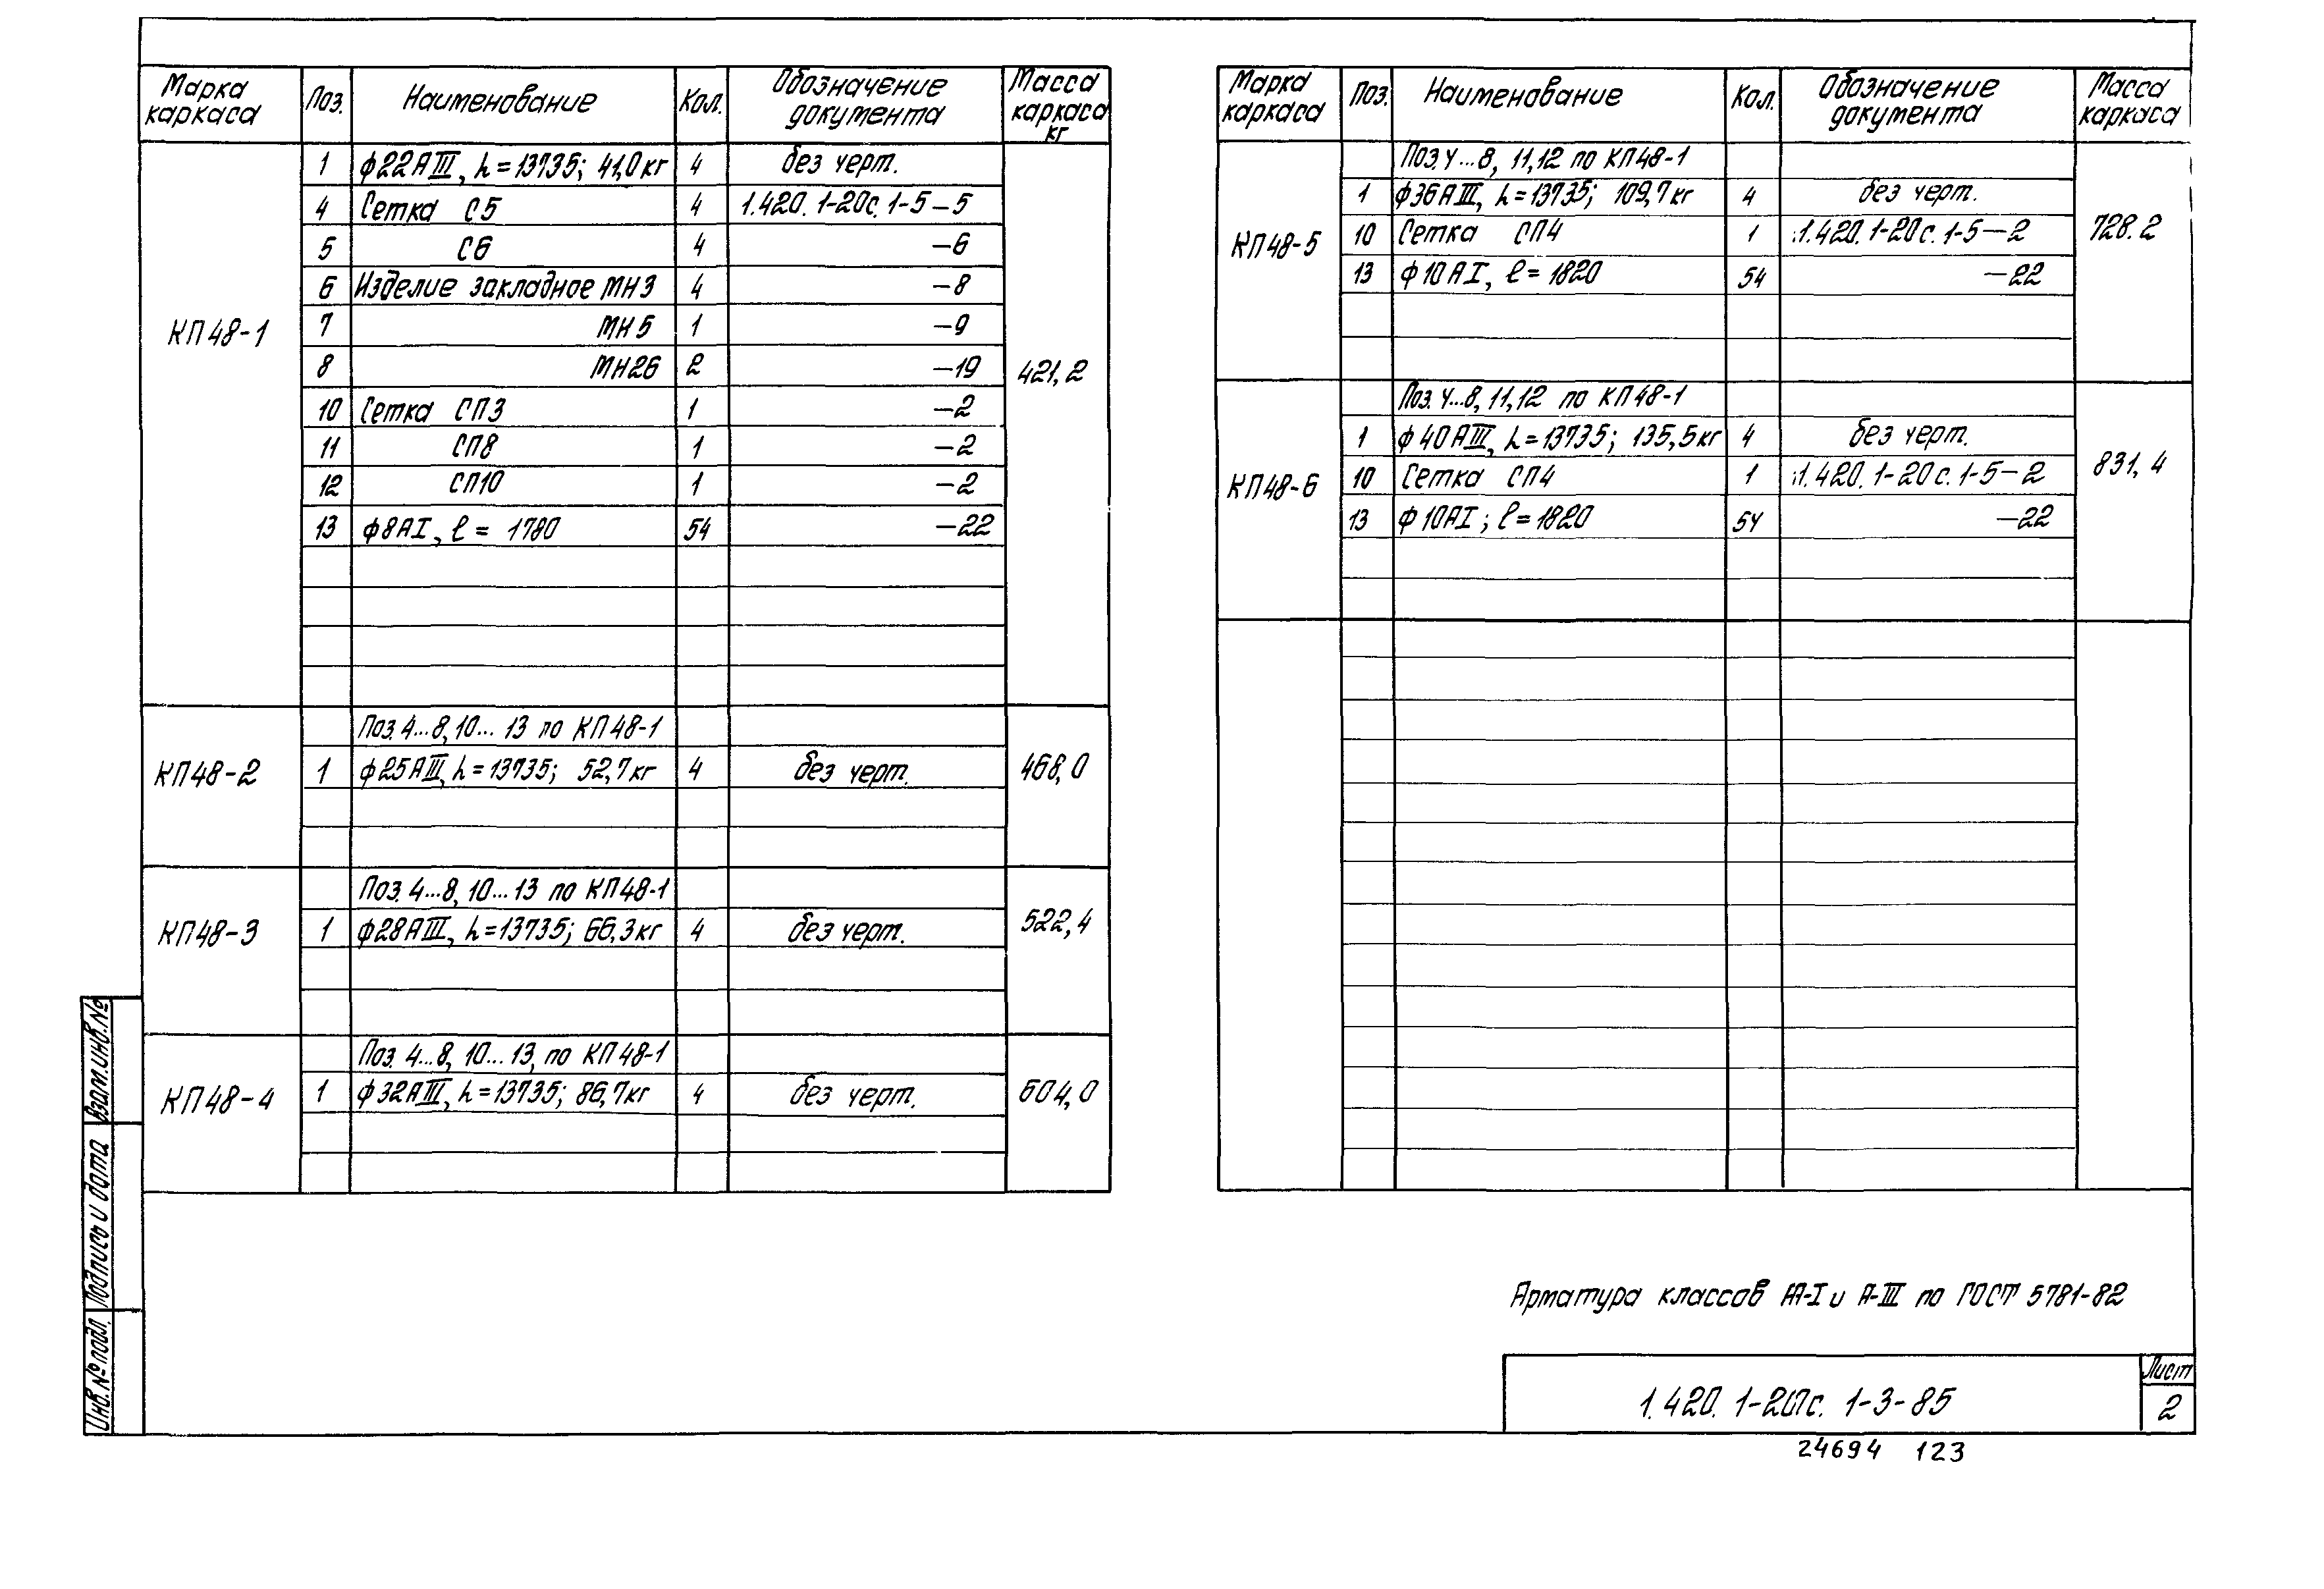 Марка каркаса Поз. Наименование Кол. Обозначение документа Масса каркаса кг
КП48-1 421,2
1 ф22АIII, h=13735; 41,0кг 4 без черт.
4 Сетка С5 4 1.420.1-20с.1-5-5
5 С6 4 -6
6 Изделие закладное МН3 4 -8
7 МН5 1 -9
8 МН26 2 -19
10 Сетка СП3 1 -2
11 СП8 1 -2
12 СП10 1 -2
13 ф8АI, ℓ= 1780 54 -22
КП48-2 468,0
Поз. 4...8, 10... 13 по КП48-1
1 ф25АIII, h=13735; 52,7кг 4 без черт.
КП48-3 522,4
Поз. 4...8, 10...13 по КП48-1
1 ф28АIII, h=13735; 66,3кг 4 без черт.
КП48-4 604,0
Поз. 4...8, 10...13, по КП48-1
1 ф32АIII, h=13735; 86,7кг 4 без черт.
Марка каркаса Поз. Наименование Кол. Обозначение документа Масса каркаса
КП48-5 728.2
Поз. 4...8, 11,12 по КП48-1
1 ф36АIII, h=13735; 109,7кг 4 без черт.
10 Сетка СП4 1 1.420.1-20с.1-5-2
13 ф10АI, ℓ=1820 54 -22
КП48-6 831,4
Поз. 4...8, 11,12 по КП48-1
1 ф40АIII, h=13735; 135,5кг 4 без черт.
10 Сетка СП4 1 1.420.1-20с.1-5-2
13 ф10АI; ℓ=1820 54 -22
Арматура классов А-I и А-III по ГОСТ 5781-82
1.420.1-20с.1-3-85
Лист
2
24694 123
Взам.инв.№
Подпись и дата
Инв.№подл.